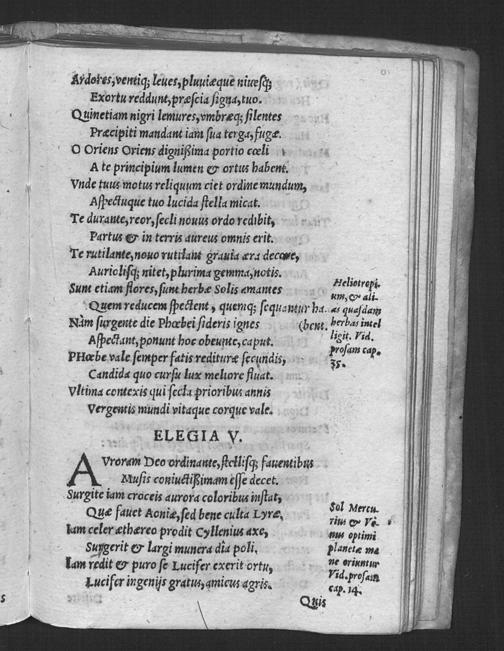 Ardores, ventiq; leues, pluuiæque niuesq;
Exortu reddunt, præscia signa, tuo.
Quinetiam nigri lemures, vmbræq; silentes
Præcipiti mandant iam sua terga, fugæ.
O Oriens Oriens dignißima portio cœli
A te principium lumen & ortus habent.
Vnde tuus motus reliquum ciet ordine mundum,
Aspectuque tuo lucida stella micat.
Te durante, reor, secli nouus ordo redibit,
Partus & in terris aureus omnis erit.
Te rutilante, nouo rutilant grauia æra decore,
Auriolisq; nitet, plurima gemma, notis.
Sunt etiam flores, sunt herbæ Solis amantes
Quem reducem spectent, quemq; sequantur ha-
(bent.
Nàm surgente die Phœbei sideris ignes
Aspectant, ponunt hoc obeunte, caput.
PHœbe vale semper fatis redituræ secundis,
Candida quo cursu lux meliore fluat.
Vltima contexis qui secla prioribus annis
Vergentis mundi vitaque corque vale.
Heliotropi-
um, & ali-
æs quasdam
herbas intel
ligit. Vid.
prosam cap.
35.
ELEGIA V.
AVroram Deo ordinante, stellisq; fauentibus
Musis coniuctißimam esse decet.
Surgite iam croceis aurora coloribus instat,
Quæ fauet Aoniæ, sed bene culta Lyræ,
Iam celer æthæreo prodit Cyllenius axe,
Surgerit & largi munera dia poli.
Iam redit & puro se Lucifer exerit ortu,
Lucifer ingenijs gratus, amicus agris.
Sol Mercu-
rius & Ve-
nus optimi
planetæ ma
ne oriuntur
Vid. prosam
cap. 14.
Quis